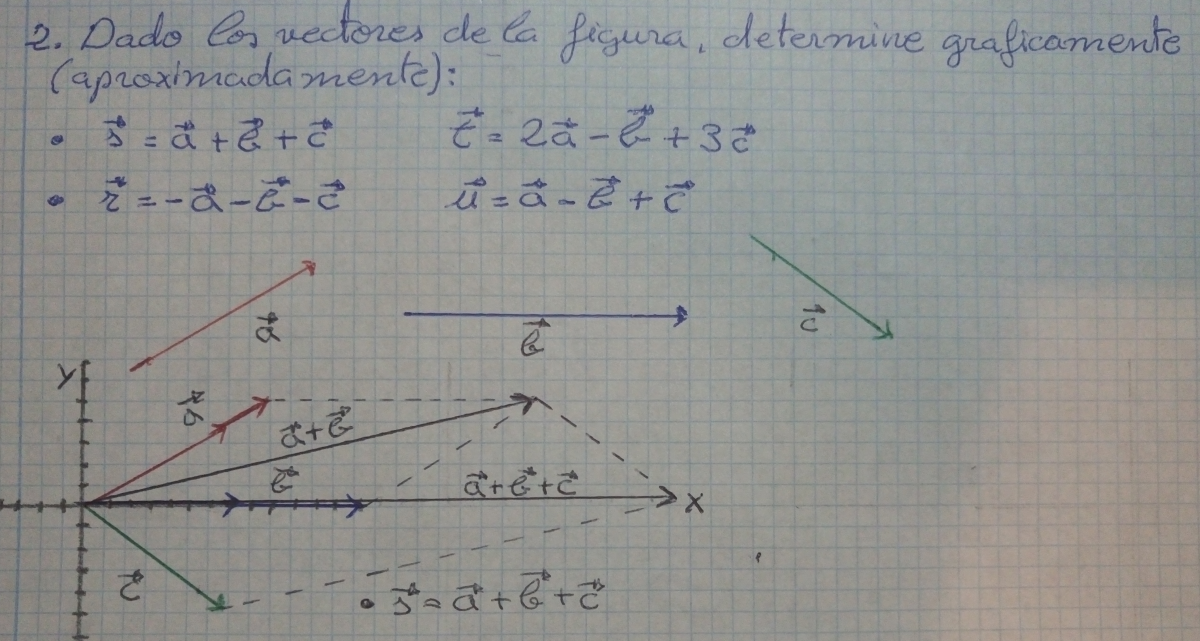 2. Dado los vectores de la figura, determine graficamente
(aproximadamente):
• s⃗ = a⃗ + b⃗ + c⃗   t⃗ = 2a⃗ - b⃗ + 3c⃗
• r⃗ = -a⃗ - b⃗ - c⃗   u⃗ = a⃗ - b⃗ + c⃗
a⃗
b⃗
c⃗
y
a⃗
a⃗+b⃗
b⃗
a⃗+b⃗+c⃗
x
c⃗
• s⃗ = a⃗ + b⃗ + c⃗